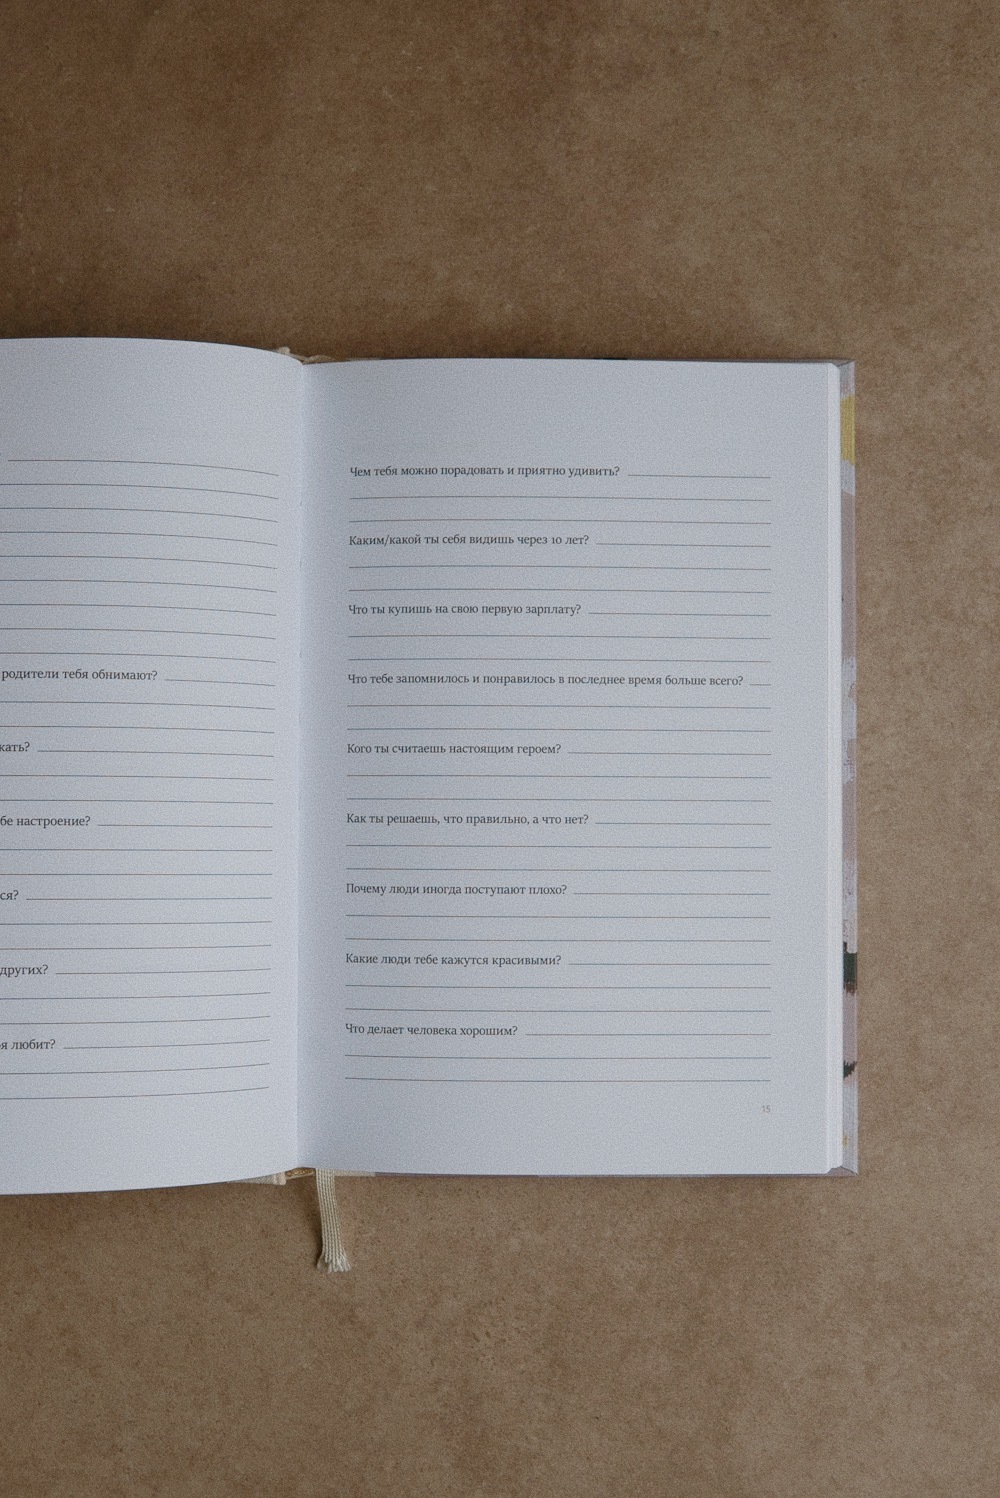 родители тебя обнимают?
настроение?
других?
любит?
Чем тебя можно порадовать и приятно удивить?
Каким/какой ты себя видишь через 10 лет?
Что ты купишь на свою первую зарплату?
Что тебе запомнилось и понравилось в последнее время больше всего?
Кого ты считаешь настоящим героем?
Как ты решаешь, что правильно, а что нет?
Почему люди иногда поступают плохо?
Какие люди тебе кажутся красивыми?
Что делает человека хорошим?
15